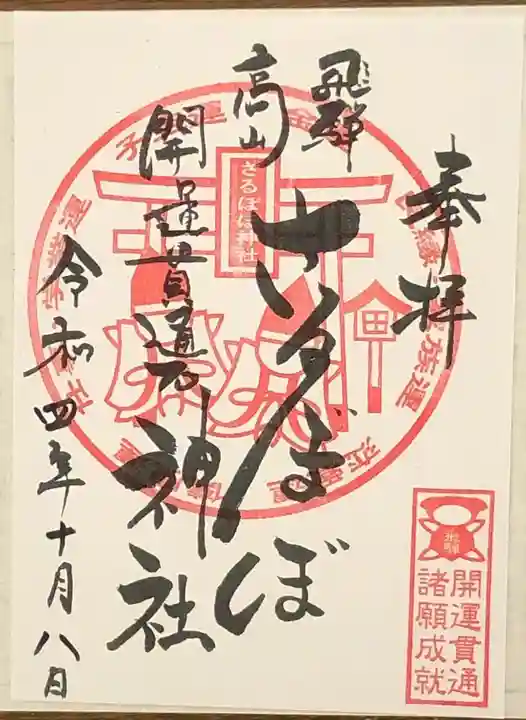 奉拝
飛騨
高山
さるぼぼ
神社
開運貫通
令和四年十月八日
さるぼぼ神社
開運貫通
諸願成就
飛騨